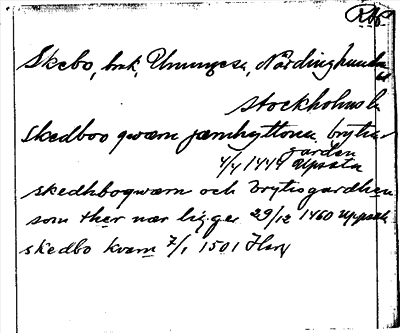 Skebo, bruk, Ununge sn, Närdinghundra
Stockholms l
skedboo qwærn jærnhyttona brytia-
garden
4/4 1449 Upsala
skedhbogwærn och brytiogardhen
som ther nær ligger 29/12 1460 Uppsala
skedbo kvarn 7/1 1501